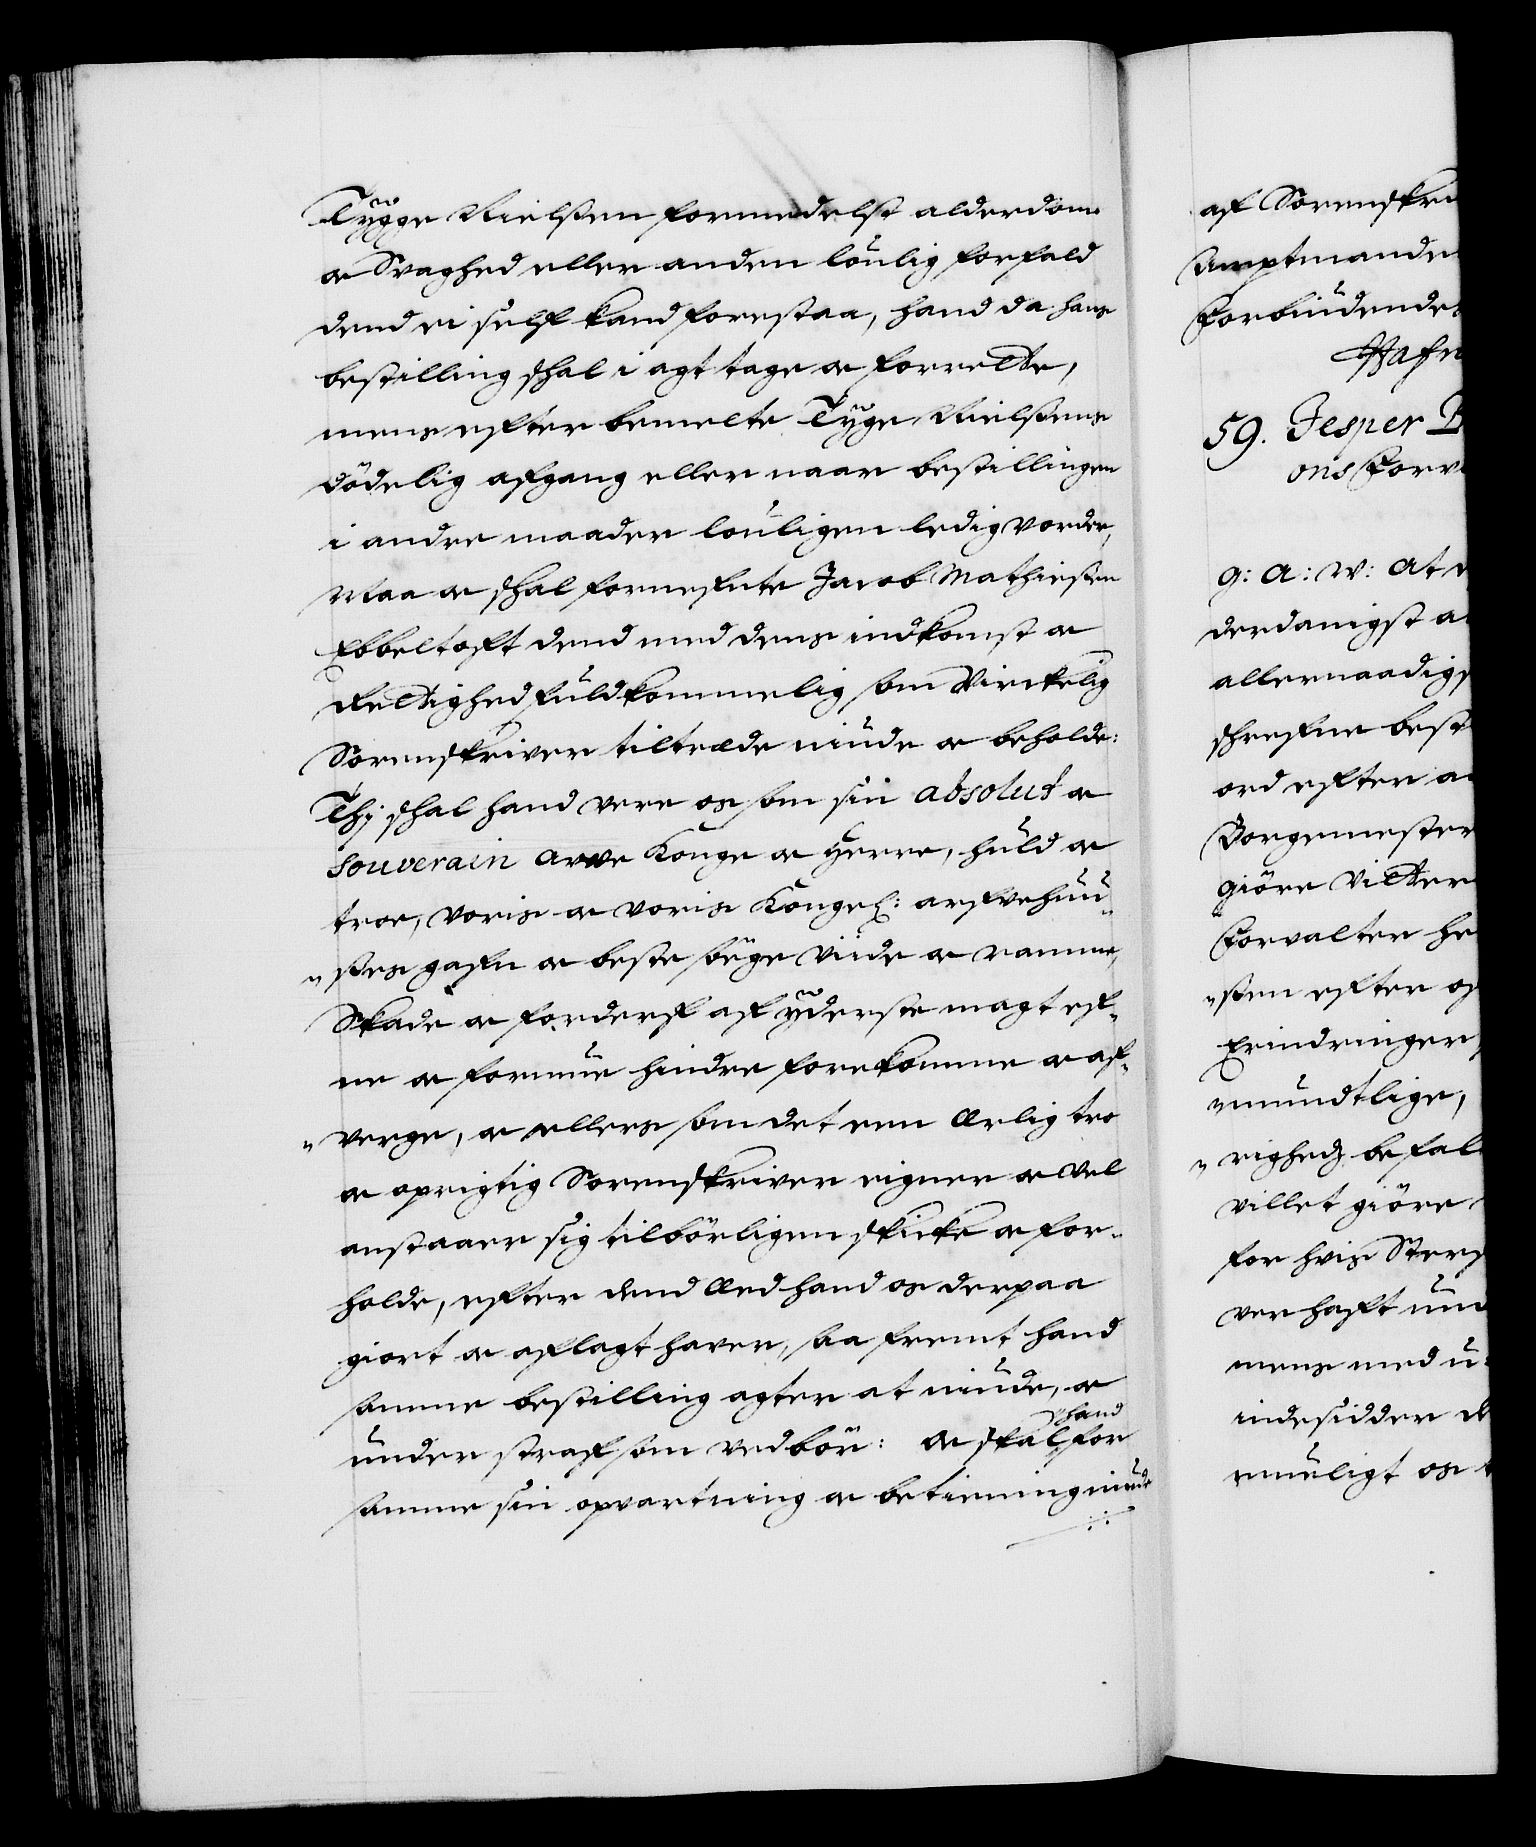 Tygge Nielssen formedelst alderdom
oc Svaghed eller anden loulig forfald
dend ei sielf kand forestaa, hand da hans
bestilling schal i agt tage oc forrette,
mens efter bemelte Tyge Nielssens
dödelig afgang eller naar bestillingen
i andre maader louligen ledig vorder,
Maa oc schal fornefnte Jacob Mathiessen
Ebbeltoft dend med dens indkomst oc
Rettighed fuldkommelig som Virckelig
Sorenskriver tiltræde niude oc beholde:
Thj schal hand vere os som sin absolut oc
souverain arve Konge oc Herre, huld oc
troe, voris oc voris Kongel: arfvehuu-
sses gafn oc beste söge viide oc ramme,
Skade oc forderf af yderste magt ef-
ne oc formue hindre forekomme oc af-
verge, oc ellers som det een ærlig tro
oc oprigtig Sorenskriver eigner oc vel
anstaaer sig tilbörligen skicke oc for-
holde, efter dend Eed hand os derpaa
giort oc aflagt haver, saa fremt hand
samme bestilling agter at niude, oc
under straf som vedbör: oc skal hand for
samme sin opvartning oc betiening niude
af Sorenskri
Amptmande
Forbiudendes
Hafn
59. Jesper
ons Forv
G: A: V: At
derdanigst a
allernaadigs
schrefne best
ord efter a
Borgemester
giöre vitter
Forvalter he
ssen efter os
Erindringer
mundtlige,
righed befal
villet giöre
for hvis Sters
ver haft
mens med u
indesidder
mueligt os